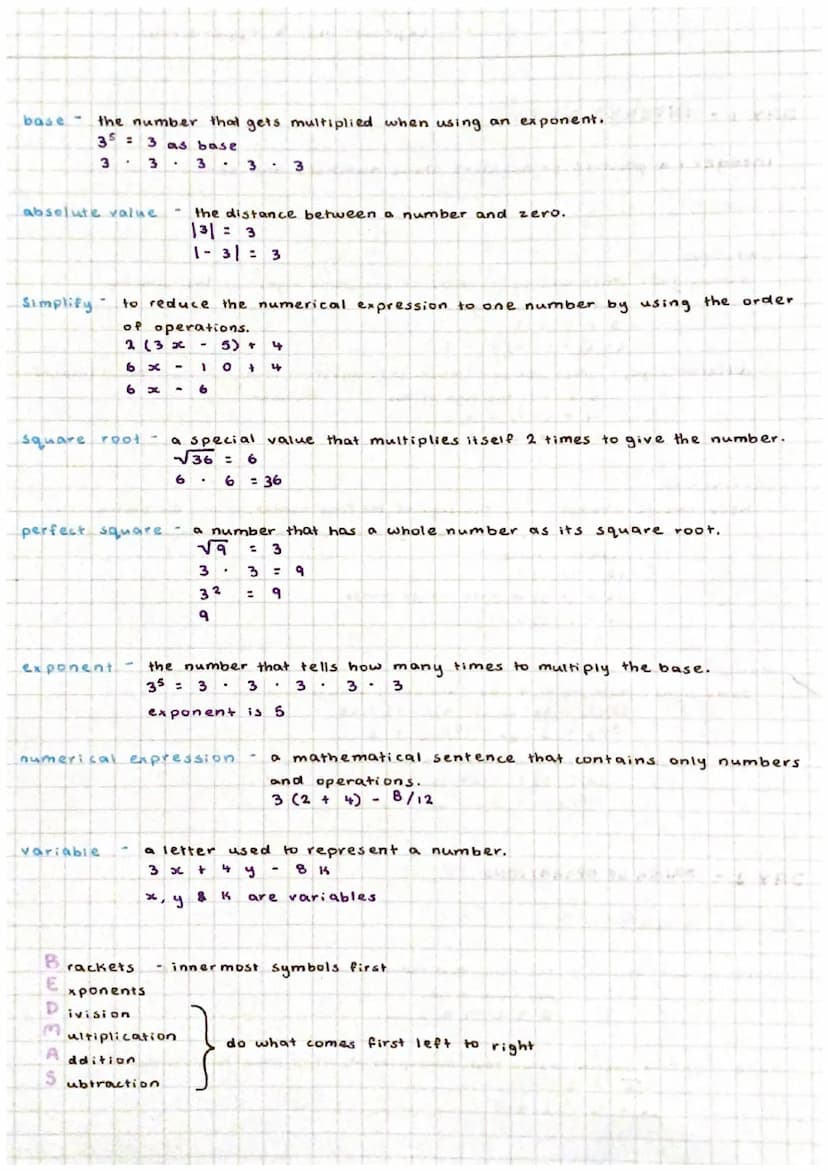 base - the number that gets multiplied when using an exponent.
3⁵ = 3 as base
3 · 3 · 3 · 3 · 3
absolute value - the distance between a number and zero.
|3| = 3
|-3| = 3
Simplify - to reduce the numerical expression to one number by using the order
of operations.
2(3x - 5) + 4
6x - 10 + 4
6x - 6
square root - a special value that multiplies itself 2 times to give the number.
√36 = 6
6 · 6 = 36
perfect square - a number that has a whole number as its square root.
√9 = 3
3 · 3 = 9
3² = 9
9
exponent - the number that tells how many times to multiply the base.
3⁵ = 3 · 3 · 3 · 3 · 3
exponent is 5
numerical expression - a mathematical sentence that contains only numbers
and operations.
3(2 + 4) - 8/12
variable - a letter used to represent a number.
3x + 4y - 8k
x, y & k are variables
Brackets - innermost symbols first
Exponents
Division
Multiplication
do what comes first left to right
Addition
Subtraction